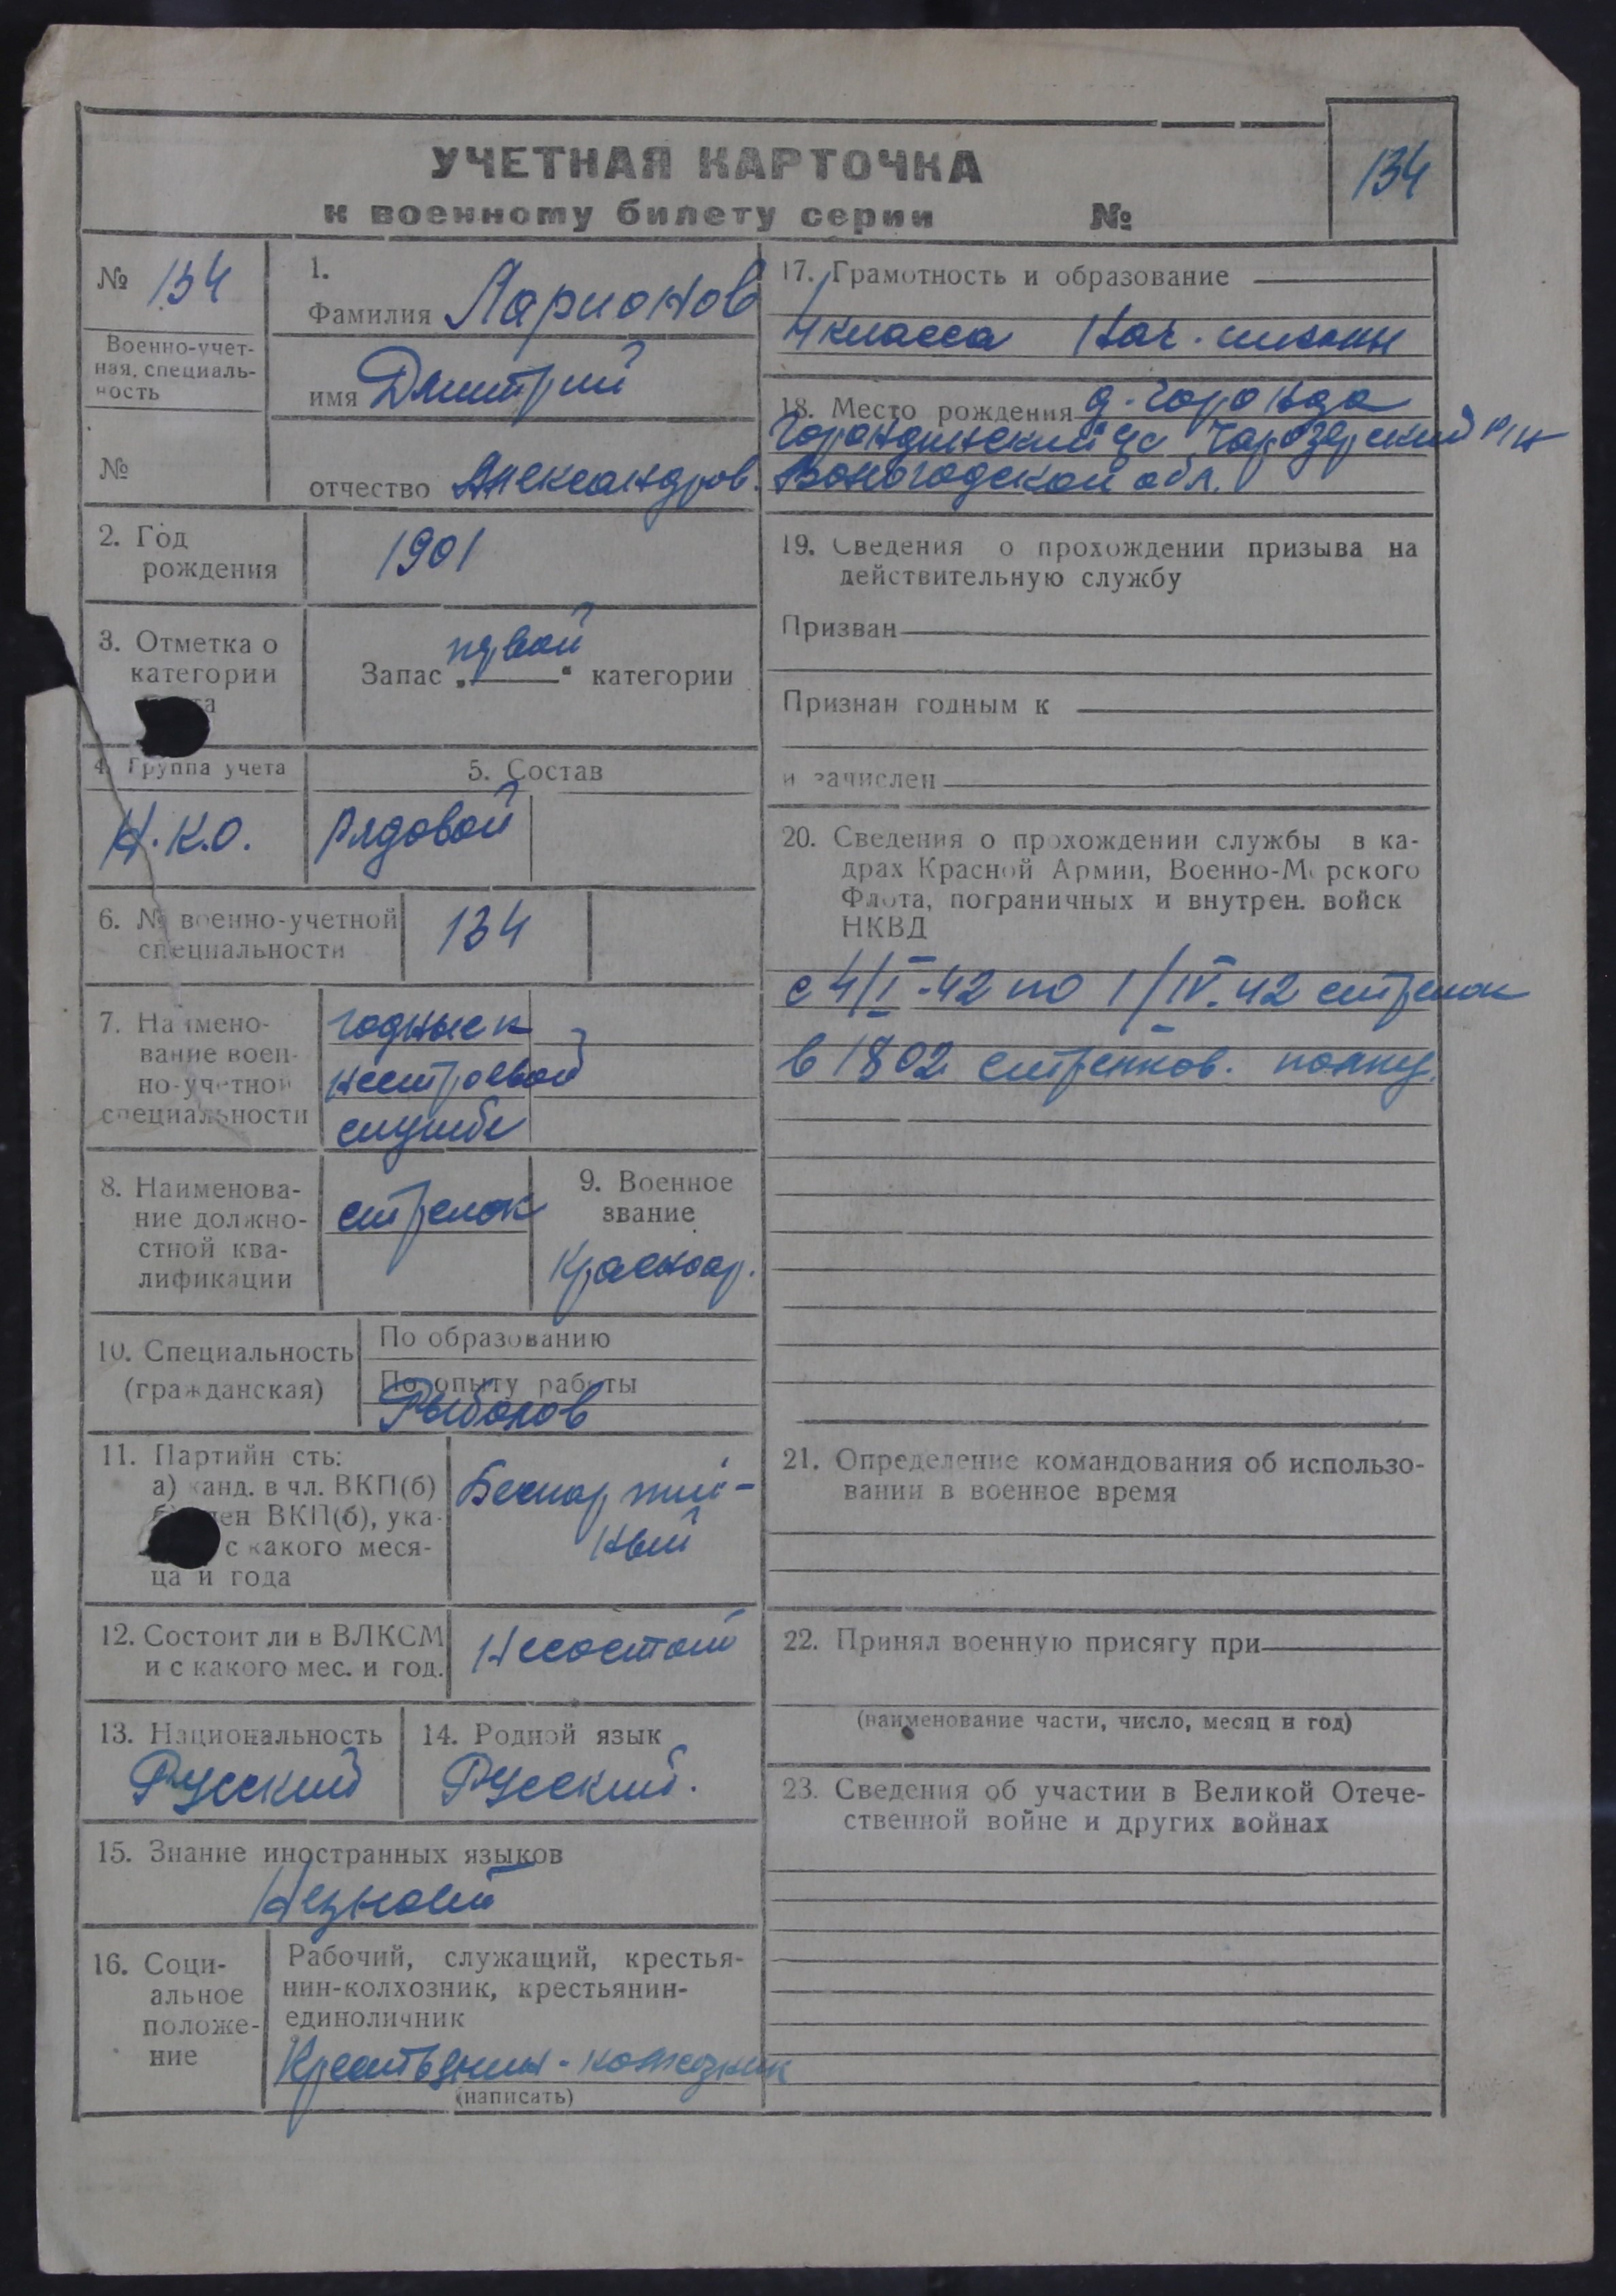 УЧЕТНАЯ КАРТОЧКА
к военному билету серии №
134
№ 134
Военно-учет-
ная специаль-
ность
№
1.
Фамилия Ларионов
имя Дмитрий
отчество Александров.
2. Год
рождения
1901
3. Отметка о
категории
Запас „первой“ категории
4. Группа учета
Н.К.О.
5. Состав
Рядовой
6. № военно-учетной
специальности
134
7. Наимено-
вание воен-
но-учетной
специальности
годные к
нестроевой
службе
8. Наименова-
ние должно-
стной ква-
лификации
стрелок
9. Военное
звание
Красноар.
10. Специальность
(гражданская)
По образованию
По опыту работы
Рыболов
11. Партийн сть:
а) канд. в чл. ВКП(б)
б) член ВКП(б), ука-
с какого меся-
ца и года
Беспартий-
ный
12. Состоит ли в ВЛКСМ
и с какого мес. и год.
Несостоит
13. Национальность
Русский
14. Родной язык
Русский.
15. Знание иностранных языков
Незнает
16. Соци-
альное
положе-
ние
Рабочий, служащий, крестья-
нин-колхозник, крестьянин-
единоличник
Крестьянин-колхозник
(написать)
17. Грамотность и образование
4 класса Нач. школы
18. Место рождения
Чарозерский р/н
Вологодской обл.
19. Сведения о прохождении призыва на
действительную службу
Призван
Признан годным к
и зачислен
20. Сведения о прохождении службы в ка-
драх Красной Армии, Военно-Морского
Флота, пограничных и внутрен. войск
НКВД
с 4/I-42 по 1/IV.42 стрелок
в 1802 стрелков. полку.
21. Определение командования об использо-
вании в военное время
22. Принял военную присягу при
(наименование части, число, месяц и год)
23. Сведения об участии в Великой Отече-
ственной войне и других войнах